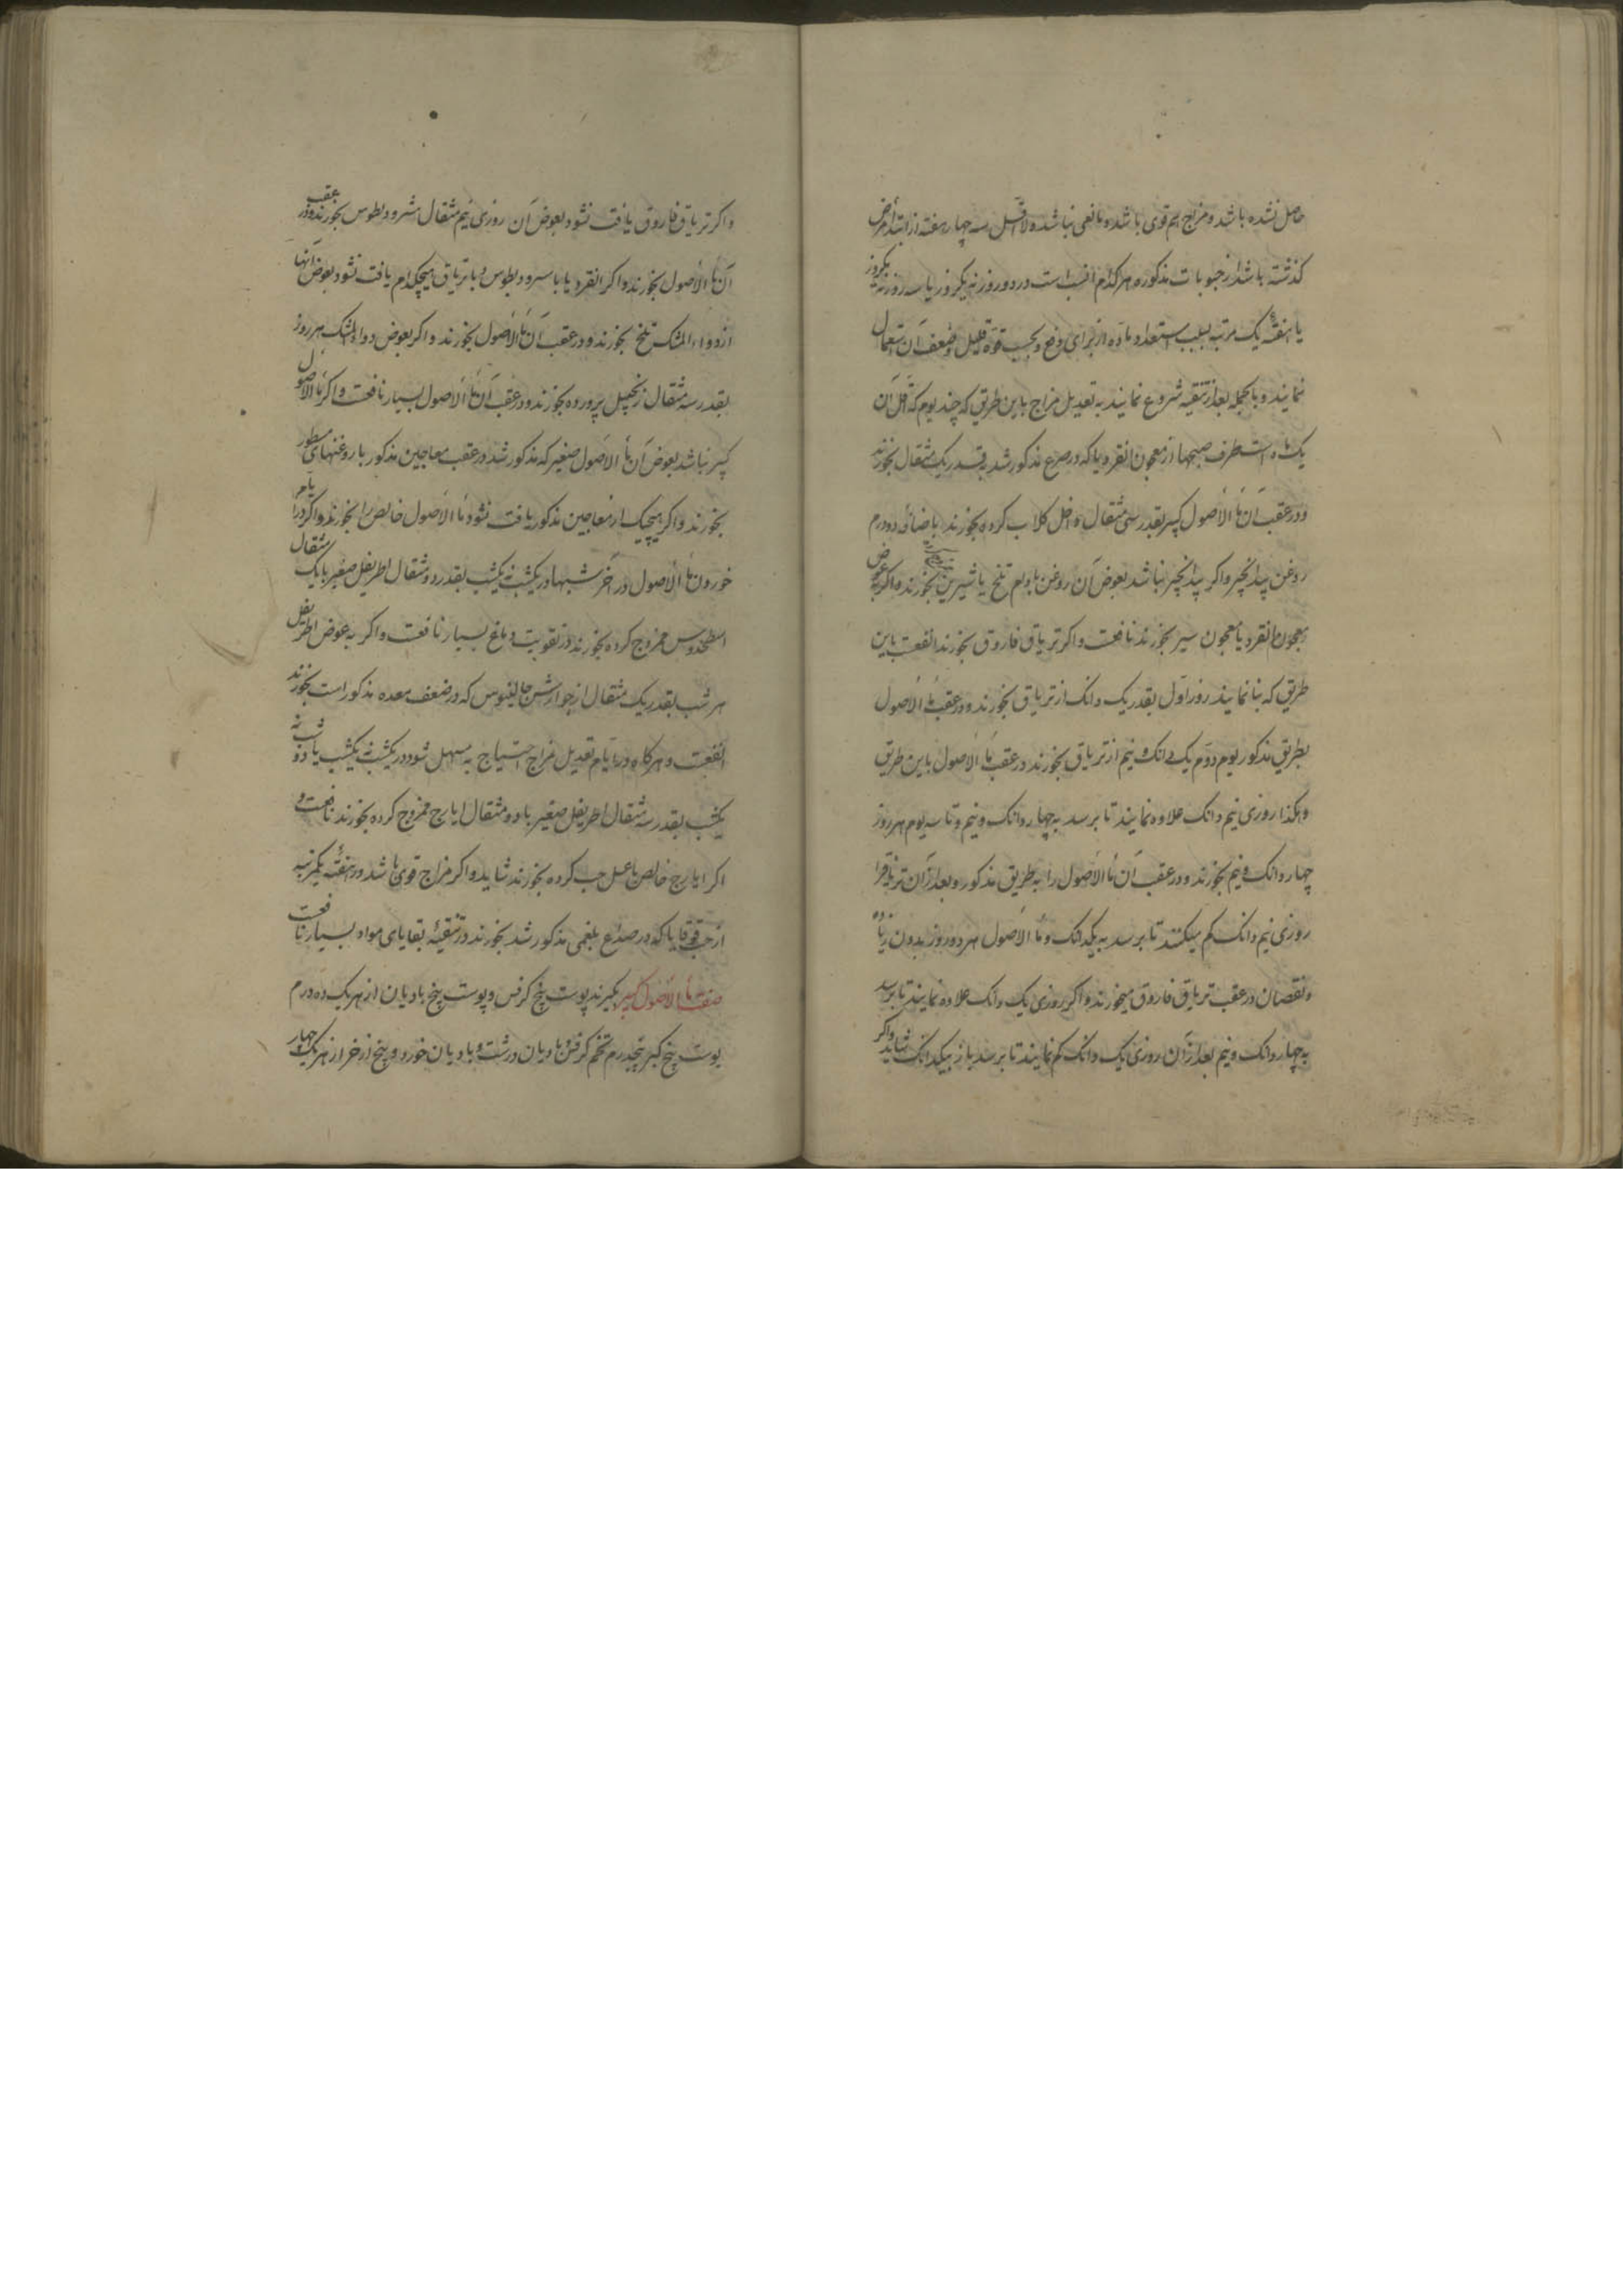 حاصل نشده باشد و مزاج هم قوی باشد و مانعی نباشد و لااقل سه چهار هفته از ابتداء مرض
کذشته باشد از حبوبات مذکوره هر کدام انسب است در دو روز نه یکروز یا سه روز نه یکروز
یا هفتهٔ یک مرتبه بسبب استعداد ماده از برای دفع و بحسب قوة قلیل و ضعف آن استعمال
نمایند و بالجمله بعد از تنقیه شروع نمایند به تعدیل مزاج باین طریق که چند یوم که اقل آن
یک ماه است طرف صبحها از معجون انقردیا که در صرع مذکور شد بقدر یک مثقال بخورند
و در عقب آن ماء الاصول کبیر بقدر سی مثقال داخل کلاب کرده بخورند باضافه دو درم
روغن بیدانجیر و اکر بیدانجیر نباشد بعوض آن روغن بادام تلخ یا شیرین بخورند و اکر بعوض
معجون انقردیا معجون سیر بخورند نافعست و اکر تریاق فاروق بخورند انفعست باین
طریق که بنا نمایند روز اول بقدر یک دانک از تریاق بخورند و در عقب ماء الاصول
بطریق مذکور یوم دوم یک دانک و نیم از تریاق بخورند در عقب ماء الاصول باین طریق
و هکذا روزی نیم دانک علاوه نمایند تا برسد به چهار دانک و نیم و تا سه یوم هر روز
چهار دانک و نیم بخورند و در عقب آن ماء الاصول را به طریق مذکور و بعد از آن تریاق را
روزی نیم دانک کم میکنند تا برسد به یکدانک و ماء الاصول هر دو روز بدون زیاده
و نقصان در عقب تریاق فاروق میخورند و اکر روزی یک دانک علاوه نمایند تا برسد
به چهار دانک و نیم بعد از آن روزی یک دانک کم نمایند تا برسد باز بیکدانک شاید و اکر
و اکر تریاق فاروق یافت نشود بعوض آن روزی نیم مثقال مثرودیطوس بخورند و در عقب
آن ماء الاصول بخورند و اکر انقردیا یا مثرودیطوس و یا تریاق هیچکدام یافت نشود بعوض آنها
از دواء المشک تلخ بخورند و در عقب آن ماء الاصول بخورند و اکر بعوض دواء المشک هر روز
بقدر سه مثقال زنجبیل پرورده بخورند و در عقب آن ماء الاصول بسیار نافعست و اکر ماء الاصول
کبیر نباشد بعوض آن ماء الاصول صغیر که مذکور شد در عقب معاجین مذکور با روغنهای مسطور
بخورند و اکر هیچیک از معاجین مذکور یافت نشود ماء الاصول خالص را بخورند و اکر در ایام
خوردن ماء الاصول در آخر شبها در یکشب نه یکشب بقدر دو مثقال اطریفل صغیر با یک مثقال
اسطخدوس ممزوج کرده بخورند در تقویت دماغ بسیار نافعست و اکر به عوض اطریفل
هر شب بقدر یک مثقال از جوارش جالینوس که در ضعف معده مذکور است بخورند
انفعست و هرکاه در ایام تعدیل مزاج احتیاج به مسهل شود در یکشب نه یکشب یا دو شب نه
یکشب بقدر سه مثقال اطریفل صغیر با دو مثقال ایارج ممزوج کرده بخورند نافعست و
اکر ایارج خالص با عسل حب کرده بخورند شاید و اکر مزاج قوی باشد در هفتهٔ یکمرتبه
از حب قوقایا که در صداع بلغمی مذکور شد بخورند در تنقیهٔ بقایای مواد بسیار نافعست
صفت ماء الاصول کبیر بکیرند پوست بیخ کرفس و پوست بیخ بادیان از هر یک ده درم
پوست بیخ کبر پنجدرم تخم کرفس بادیان درشت و بادیان خورد و بیخ اذخر از هر یک چهار